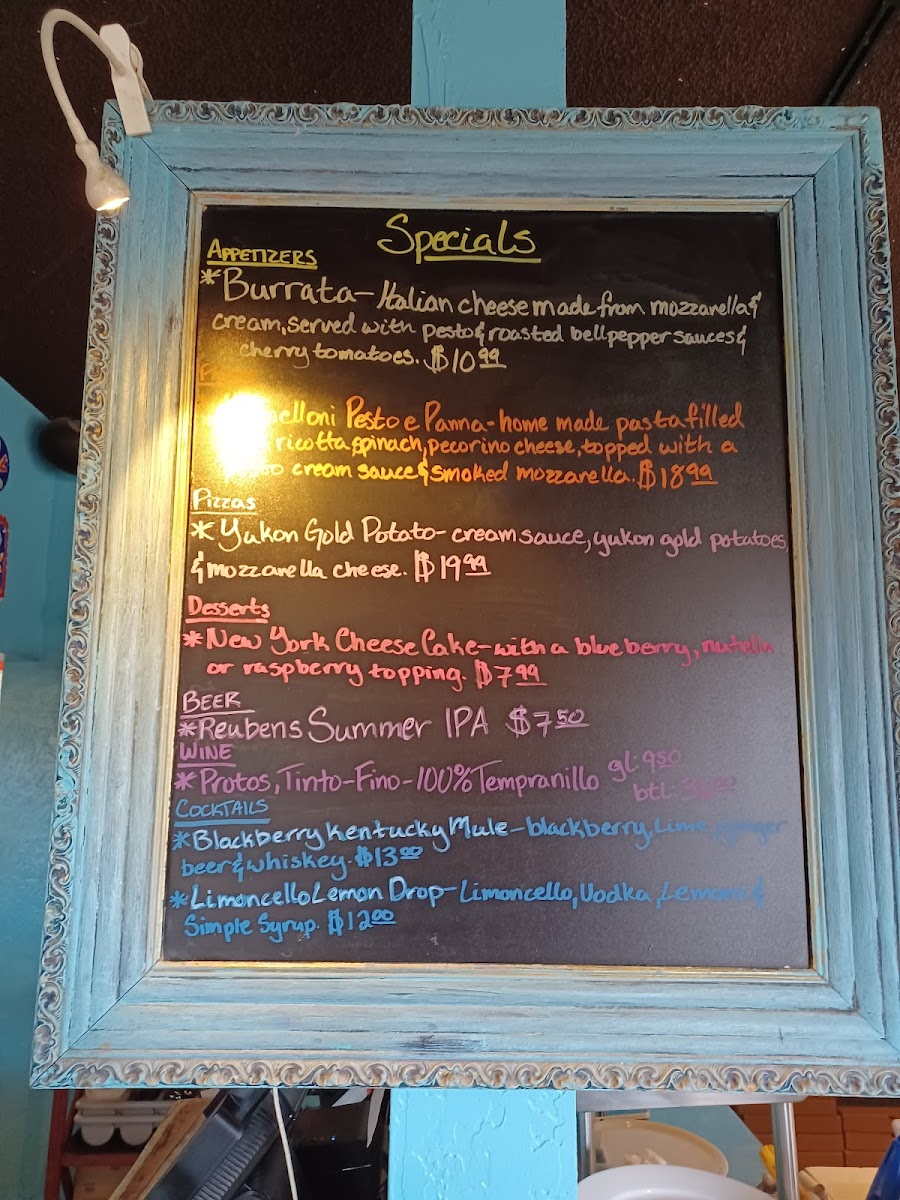 Specials
APPETIZERS
*Burrata-Italian cheese made from mozzarella &
cream, served with pesto & roasted bell pepper sauces &
cherry tomatoes. $10.99
Pesto e Panna-home made pasta filled
ricotta, spinach, pecorino cheese, topped with a
cream sauce & smoked mozzarella. $18.99
Pizzas
*Yukon Gold Potato-cream sauce, yukon gold potatoes,
& mozzarella cheese. $19.99
Desserts
*New York Cheese Cake-with a blueberry, nutella
or raspberry topping. $7.99
BEER
*Reubens Summer IPA $7.50
WINE
*Protos, Tinto-Fino-100% Tempranillo gl. 9.50
btl.
COCKTAILS
*Blackberry Kentucky Mule-blackberry, Lime, ginger
beer & whiskey. $13.00
*Limoncello Lemon Drop-Limoncello, Vodka, Lemons &
Simple Syrup. $12.00